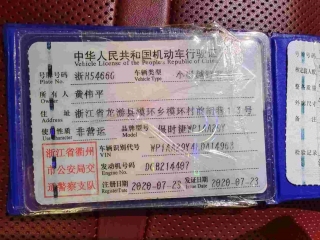 中华人民共和国机动车行驶证
Vehicle License of the People's Republic of China
号牌号码 浙H5466G 车辆类型
Plate No. Vehicle Type
所有人 黄伟平
Owner
住址 浙江省龙游县模环乡模环村
Address
使用性质 非营运 品牌型号 保时捷
Use Character Model
浙江省衢州
市公安局交
通警察支队
车辆识别代号
VIN
发动机号码 DCB214407
Engine No.
注册日期 2020-07-23 发证日期 2020-07-23
Register Date Issue Date